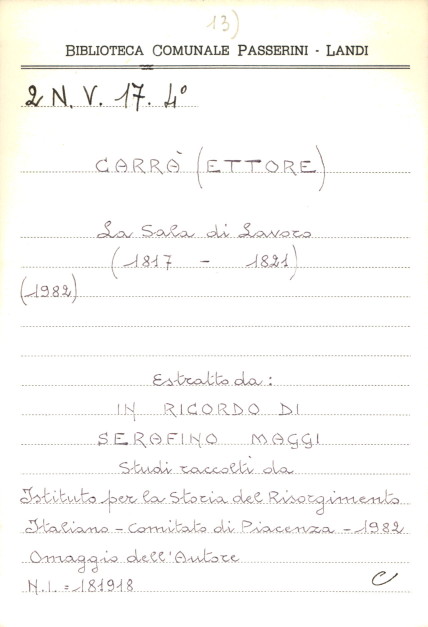 13)
BIBLIOTECA COMUNALE PASSERINI - LANDI
2 N. V. 17. 4°
CARRÀ (ETTORE)
La Sala di Lavoro
(1817 - 1821)
(1982)
Estratto da:
IN RICORDO DI
SERAFINO MAGGI
Studi raccolti da
Istituto per la Storia del Risorgimento
Italiano - Comitato di Piacenza - 1982
Omaggio dell'Autore
N.I. = 181918
C